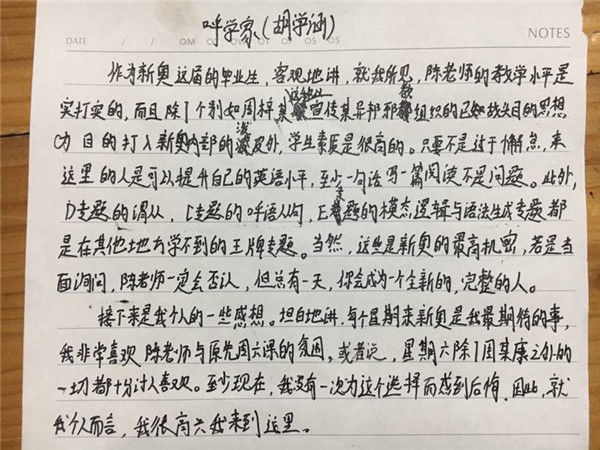 呼学家(胡学涵)
DATE / / ○M ○T ○W ○T ○F ○S ○S NOTES
作为新奥这届的毕业生,客观地讲,就我所见,陈老师的教学水平是
实打实的,而且除1个别如周梓某宣传某异邦邪教组织的已知故头目的思想
为目的打入新奥内部的浅皮外,学生素质是很高的。只要不是过于懈怠,来
这里的人是可以提升自己的英语水平,至少一句话写一篇阅读不是问题。此外,
D专题的谓从,C专题的呼语从句,E专题的模态逻辑与语法生成专题都
是在其他地方学不到的王牌专题。当然,这些是新奥的最高机密,若是当
面询问,陈老师一定会否认,但总有一天,你会成为一个全新的,完整的人。
接下来是我个人的一些感想。坦白地讲,每个星期来新奥是我最期待的事,
我非常喜欢陈老师与原先周六课的氛围,或者说,星期六除1周某康之外的
一切都十分讨人喜欢。至少现在,我没有一次为这个选择而感到后悔,因此,就
我个人而言,我很高兴我来到这里。